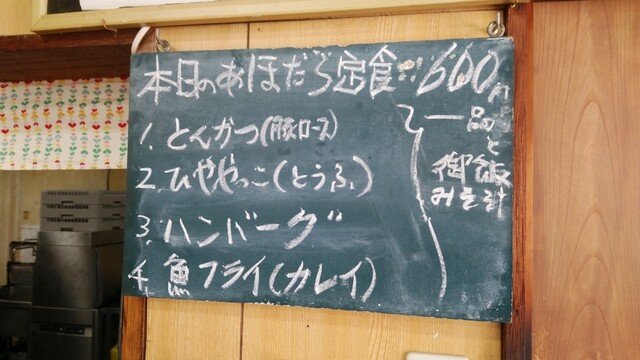 本日のあほだら定食!! 600円
1. とんかつ(豚ロース)
2. ひややっこ(とうふ)
3. ハンバーグ
4. 魚フライ(カレイ)
一品と
御飯
みそ汁